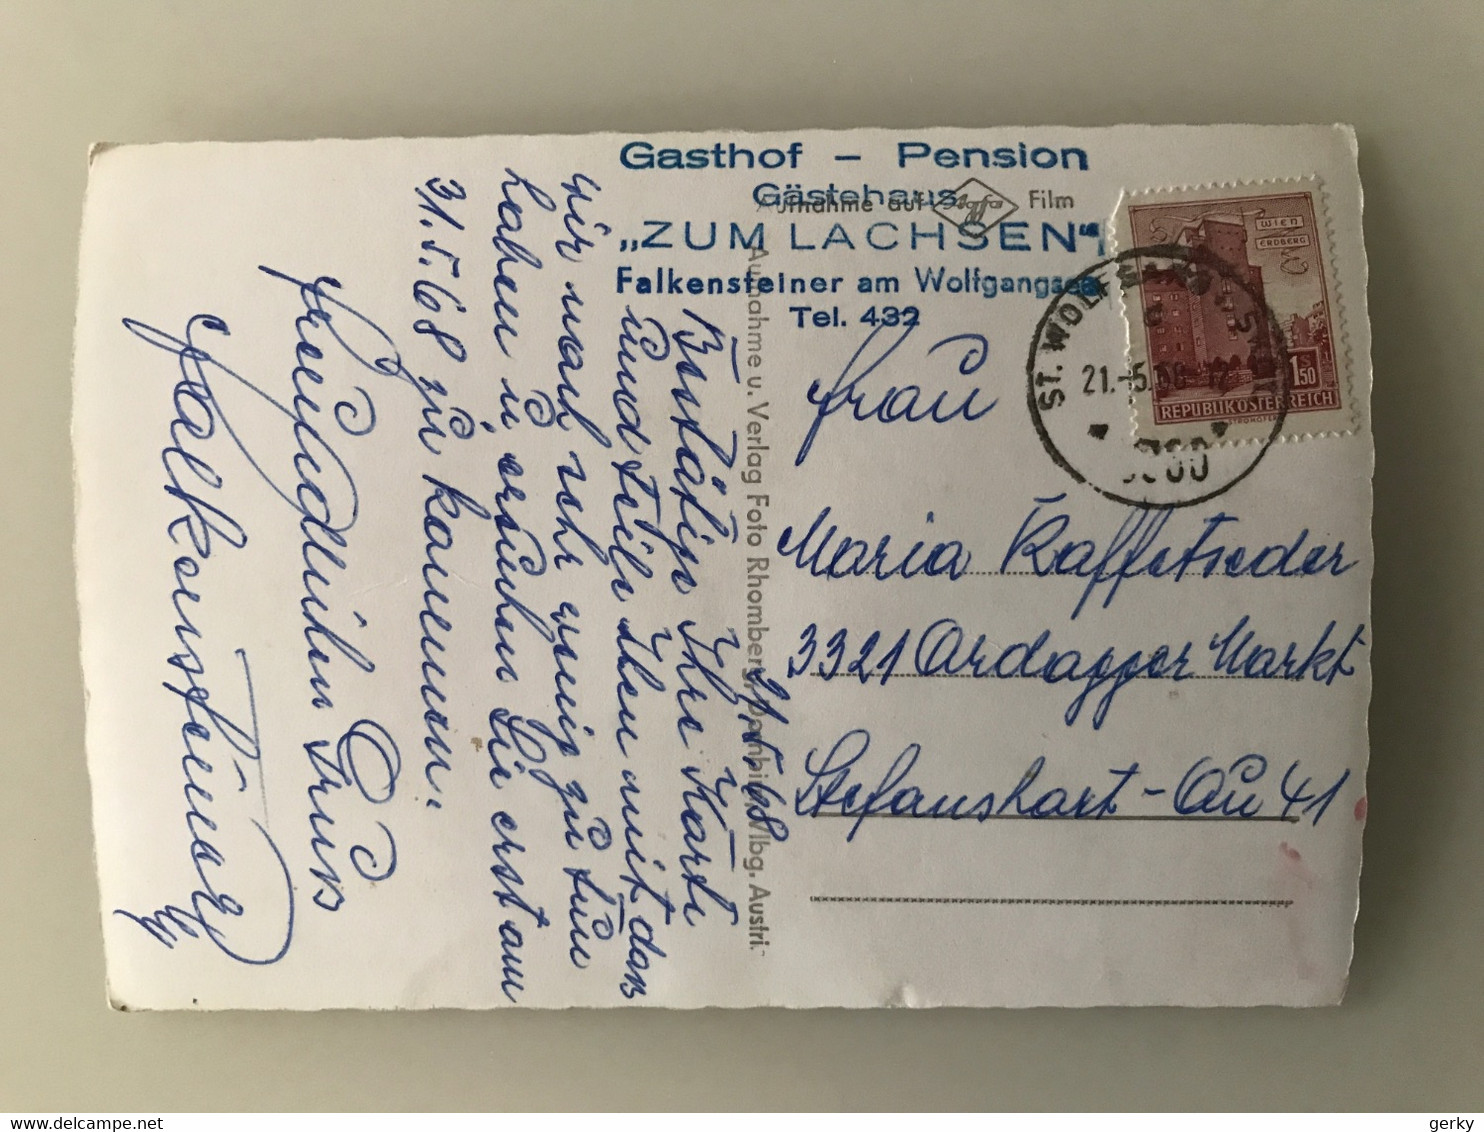 Gasthof – Pension
Gästehaus
„ZUM LACHSEN"
Falkensteiner am Wolfgangsee
Tel. 432
Aufnahme auf Agfa Film
WIEN
ERDBERG
S
1.50
REPUBLIK ÖSTERREICH
ST. WOLFGANG
21.-5.68
Aufnahme u. Verlag Foto Rhomberg, Dornbirn, Vlbg. Austri.
Frau
Maria Kaffetseder
3321 Ardagger Markt
Stefanshart-Au 41
21.5.68
Bestätige Ihre Karte
und teile Ihen mit das
wir noch sehr wenig zu tun
haben u. ersuchen Sie erst am
31.5.68 zu kommen.
Freundlichen Gruss
Falkensteiner
delcampe.net
gerky